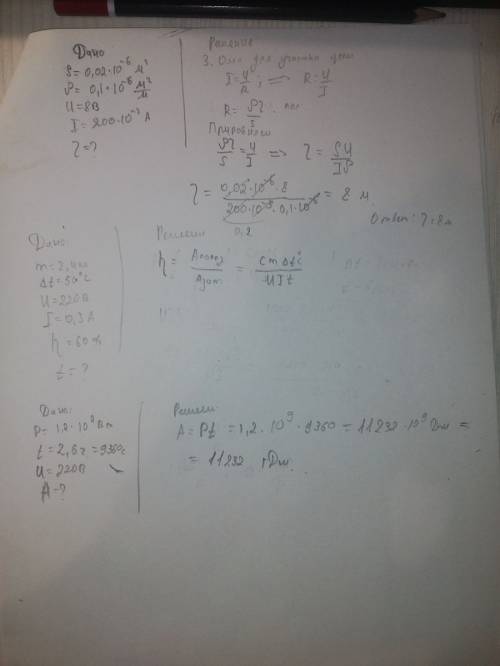 Дано
S = 0,02·10⁻⁶ м²
ρ = 0,1·10⁻⁶ м²/м
U = 8В
I = 200·10⁻³ А
l = ?
Решение
З. Ома для участка цепи
I = U/R; => R = U/I
R = ρl/S
Приравняем
ρl/S = U/I => l = SU/Iρ
l = 0,02·10⁻⁶·8 / 200·10⁻³·0,1·10⁻⁶ = 8 м.
0,2
Ответ: l = 8м
Дано:
Δt = 50°C
U = 220В
I = 0,3 А
η = 60%
t = ?
Решение
η = Аполез/Азат = cmΔt°/UIt
Дано:
P = 1,2·10⁹ Вт
t = 2,6ч = 9360с
U = 220В
A = ?
Решение
A = Pt = 1,2·10⁹·9360 = 11232·10⁹ Дж =
= 11232 гДж.